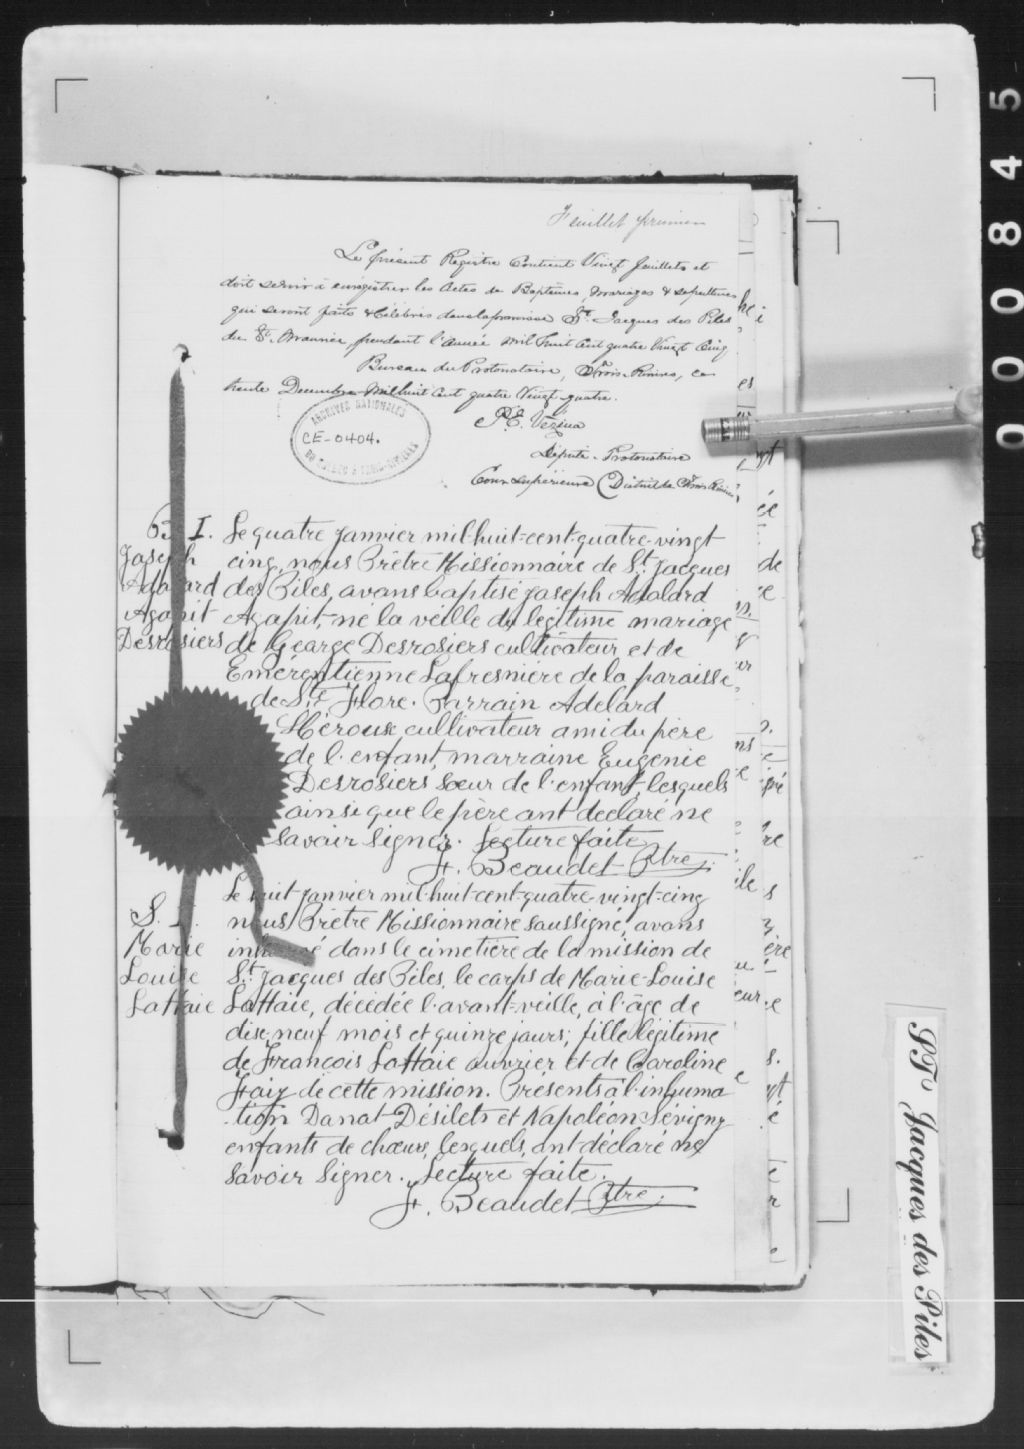 Feuillet premier
Le présent Registre Contient Vingt feuillets et
doit servir à enregistrer les Actes de Baptêmes, Mariages & sépultures
qui seront faits & Célébrés dans la paroisse St. Jacques des Piles
du St. Maurice pendant l'année Mil huit cent quatre Vingt Cinq
Bureau du Protonotaire, Trois-Rivières, ce
trente Décembre Mil huit cent quatre Vingt-quatre.
ARCHIVES NATIONALES
CE-0404.
DU QUÉBEC À TROIS-RIVIÈRES
P.E. Vézina
Député-Protonotaire
Cour Supérieure District de Trois Rivières
B. I.
Joseph
Adalard
Agapit
Desrosiers
Le quatre janvier mil-huit-cent-quatre-vingt
cinq, nous Prêtre Missionnaire de St. Jacques
des Piles, avons baptisé Joseph Adalard
Agapit, né la veille du légitime mariage
de George Desrosiers cultivateur et de
Emérentienne Lafresnière de la paroisse
de Ste Flore. Parrain Adelard
Hérouse cultivateur ami du père
de l'enfant, marraine Eugénie
Desrosiers sœur de l'enfant, lesquels
ainsi que le père ont déclaré ne
savoir signer. Lecture faite.
J. Beaudet Ptre.
S.
Marie
Louise
Lattaie
Le huit janvier mil-huit-cent-quatre-vingt-cinq
nous Prêtre Missionnaire soussigné, avons
inhumé dans le cimetière de la mission de
St. Jacques des Piles, le corps de Marie-Louise
Lattaie, décédée l'avant-veille, à l'âge de
dix-neuf mois et quinze jours; fille légitime
de François Lattaie ouvrier et de Caroline
de cette mission. Présents à l'inhuma
-tion Donat Désilets et Napoléon Sévigny
enfants de chœur, lesquels, ont déclaré ne
savoir signer. Lecture faite.
J. Beaudet Ptre.
000845
ST Jacques des Piles